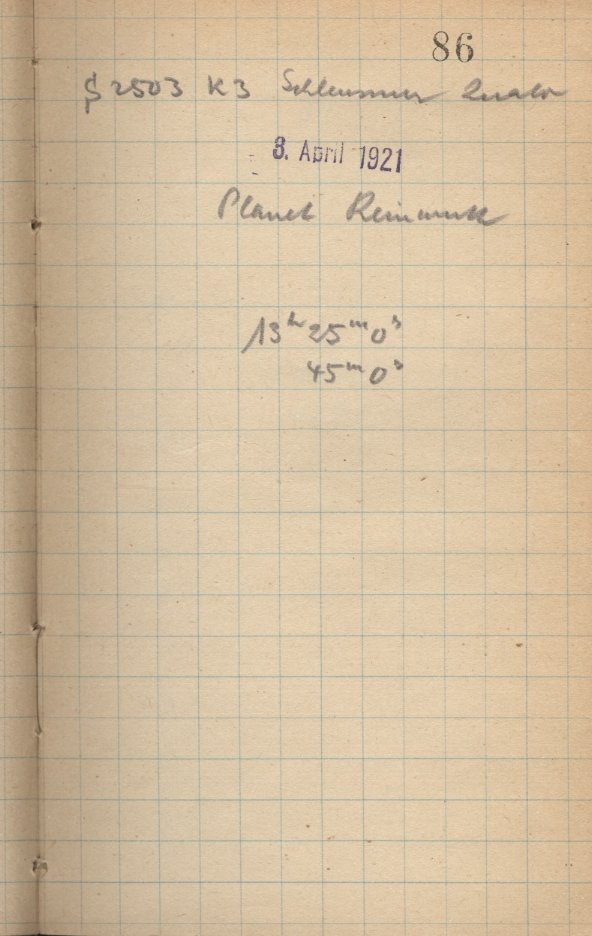 86
2503 K3 Schleussner
3. April 1921
Planet Reinmuth
13ʰ 25ᵐ 0ˢ
45ᵐ 0ˢ